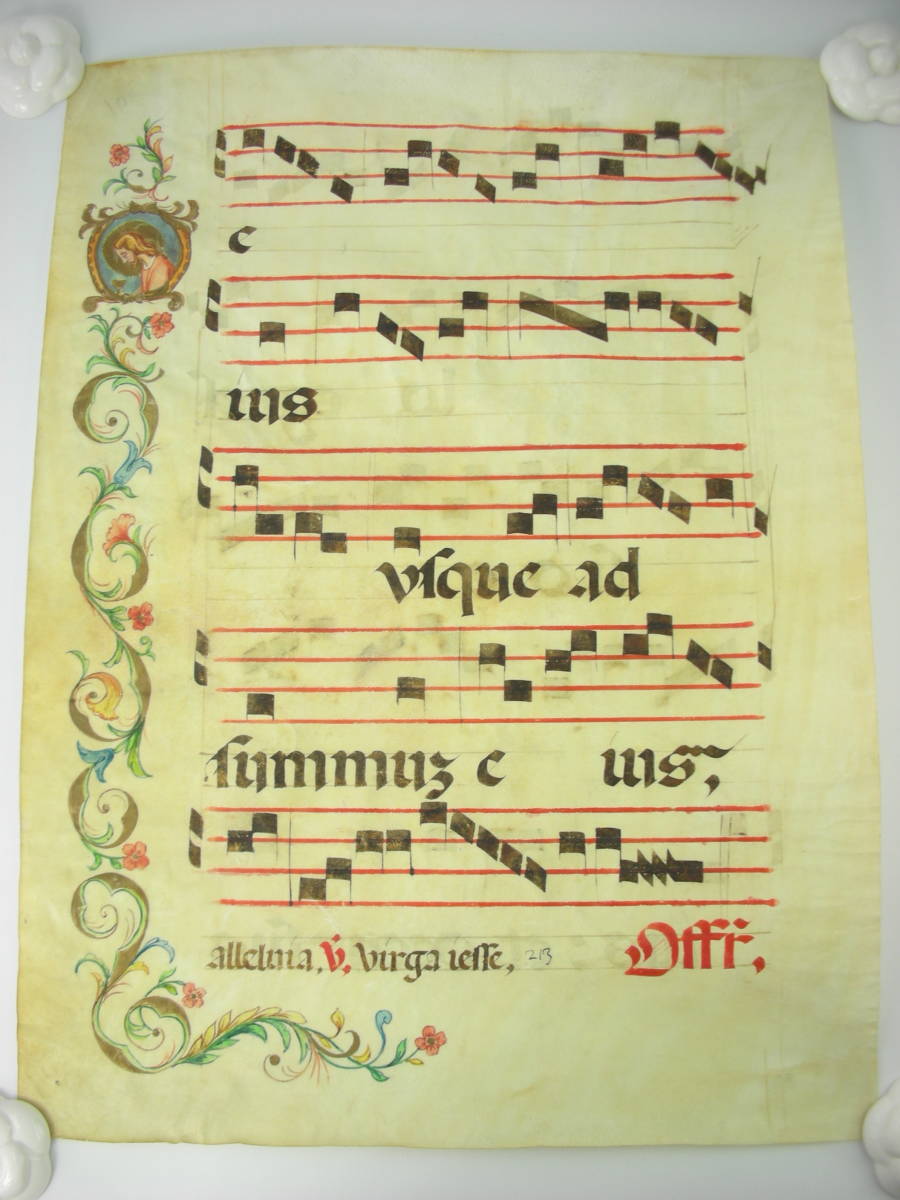 e
ius
vsque ad
summuz e ius,
alleluia, V, Virga iesse, 213 Offr,